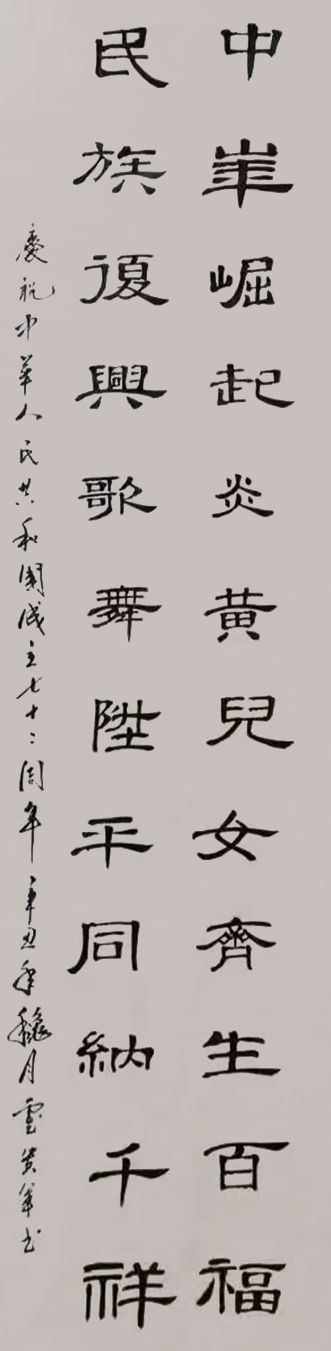 中華崛起炎黃兒女齊生百福
民族復興歌舞陞平同納千祥
慶祝中華人民共和國成立七十二周年辛丑年穐月雲